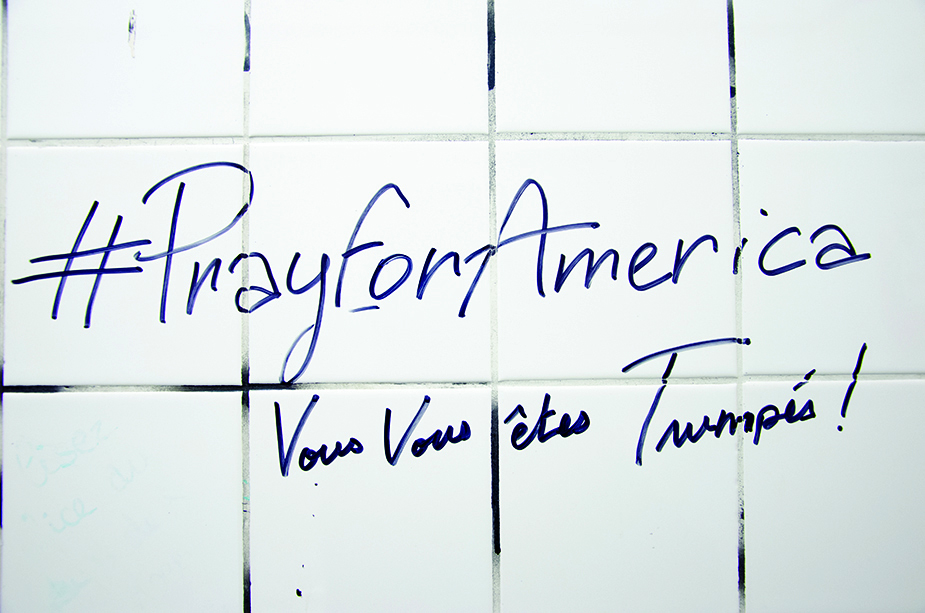 #PrayforAmerica
Vous Vous êtes Trumpés !